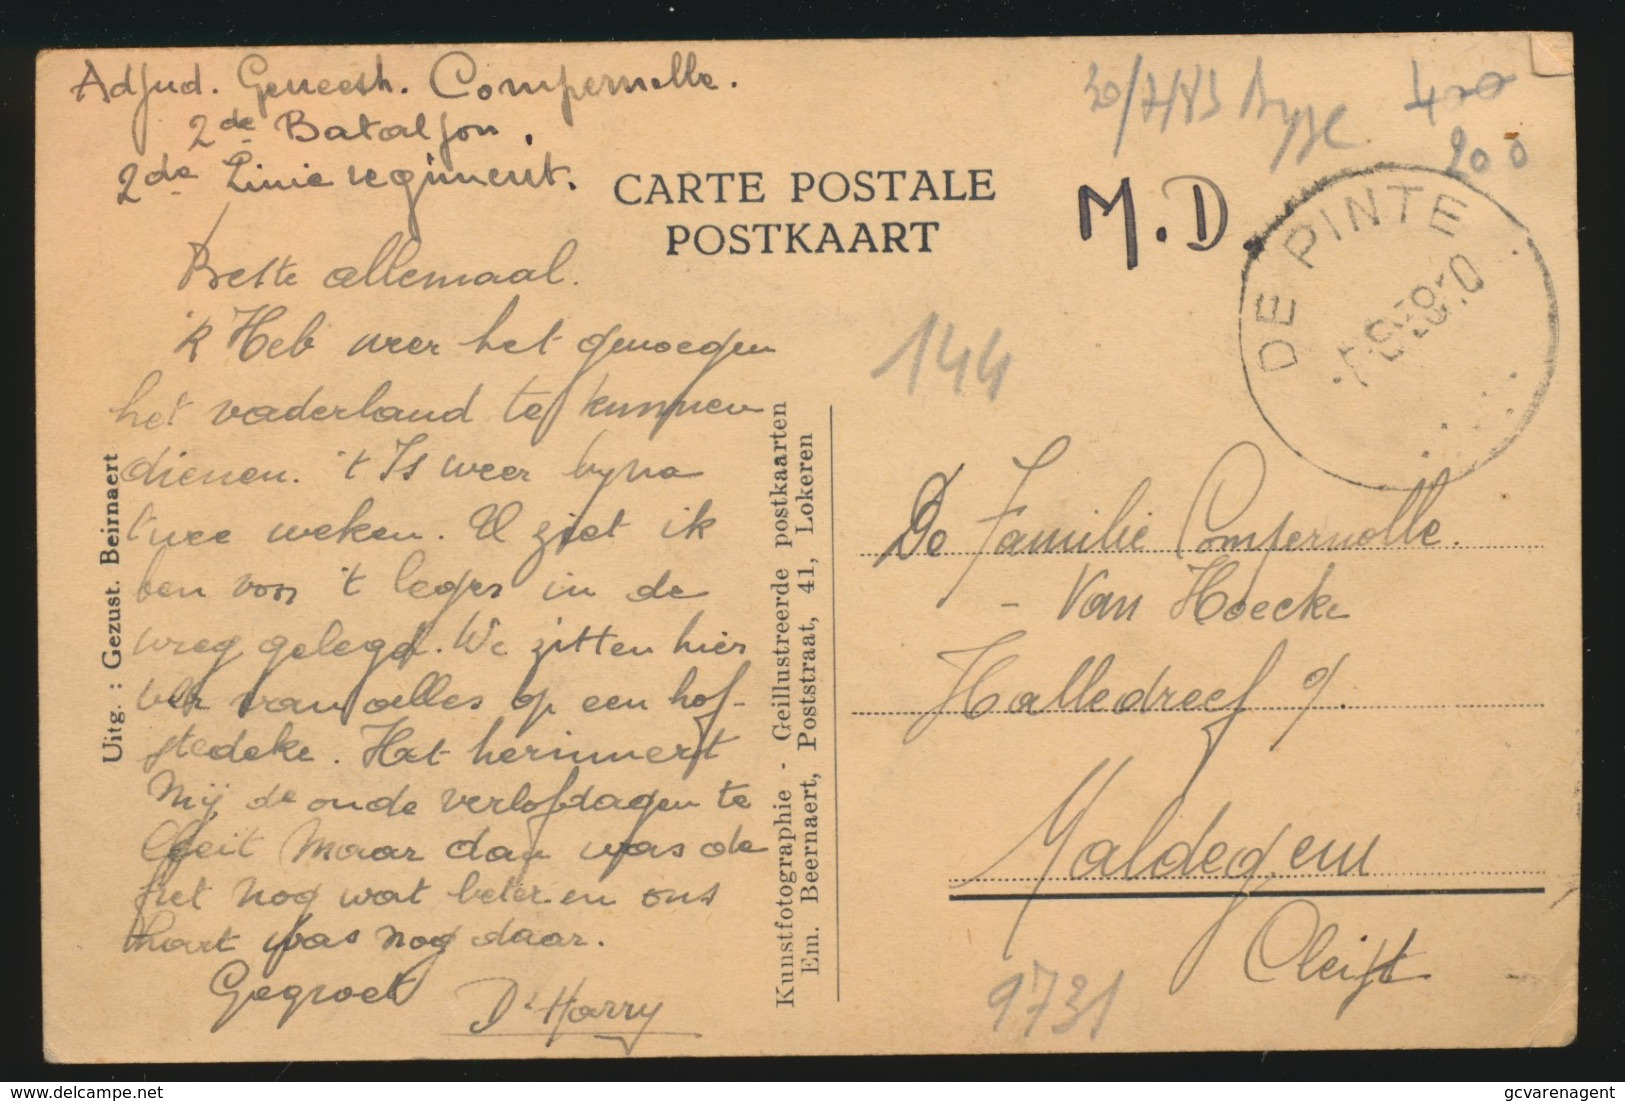 Adjud. Geneesh. Compernolle.
2de Bataljon.
2de Linie regiment.
CARTE POSTALE
POSTKAART
Beste allemaal.
'k Heb weer het genoegen
het vaderland te kunnen
dienen. 't Is weer byna
twee weken. U ziet ik
ben von 't leger in de
wreg gelegd. We zitten hier
van alles op een hof-
stedeke. Het herinnert
Mij de oude verlofdagen te
Cleit Maar dan was de
het nog wat beter en ons
hart was nog daar.
Gegroet
Dr Harry
Uitg. : Gezust. Beirnaert
Kunstfotographie - Geillustreerde postkaarten
Em. Beernaert, Poststraat, 41, Lokeren
30/7/83
400
200
M.D.
DE PINTE
144
De Familie Compernolle.
- Van Hoecke
Halledreef 9/.
Maldegem
Cleift
9731
Delcampe.net
gcvarenagent